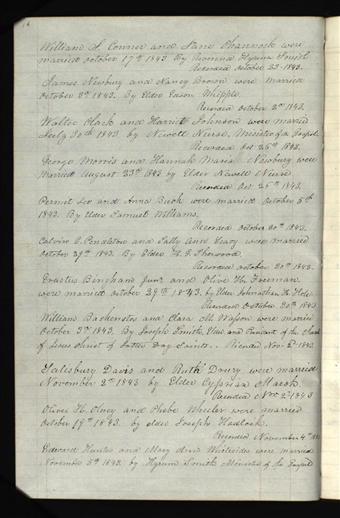 William S. Conner and Jane Shannock were
married October 17th 1843 By Hyrum Smith
Recorded October 23. 1843.
James Newbury and Nancy Brown were married
October 8th 1843. By Elder Eason Whipple.
Recorded October 2d 1843.
Walter Clark and Harriet Johnson were married
July 30th 1843 by Newell Nurse, Minister of the Gospel
Recorded Oct 25th 1843.
George Morris and Hannah Maria Newbury were
Married August 23d 1843 by Elder Newell Nurse
Recorded Oct. 25th 1843.
and Anna Buck were married October 5th
1843. By Elder Samuel Williams.
Recorded October 30th 1843.
Calvin C. Pendleton and Sally Ann Seaty were married
October 29th 1843. By Elder H. G. Sherwood.
Recorded October 30th 1843.
Erastus Bingham Junr and Olive H. Freeman
were married October 29th 1843. by Elder Johnathan H. Hale
Recorded October 30th 1843.
William Backenstos and Clara M. Wasson were married
October 3d 1843. By Joseph Smith, and of the Church
of Jesus Christ of Latter Day Saints. Recorded Nov. 1843
Salisbury Davis and Ruth Doury were married
November 2d 1843 by Elder Cyprian Marsh
Recorded Nov 2d 1843
Oliver H. Olney and Phebe Wheeler were married
October 19th 1843. by elder Joseph Hadlock.
Recorded November 4th
Edward Hunter and Mary Ann Whitesides were married
November 5th 1843. by Hyrum Smith Minister of the Gospel